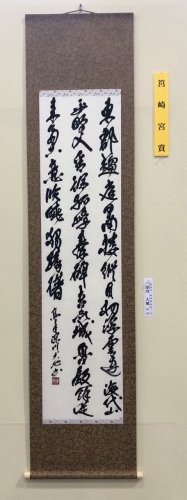 筥崎宮賞
東郡趨庭日南樓縱目初浮雲連海岱
平野入青徐孤嶂秦碑在荒城魯殿餘從
来多古意臨眺獨躊躇